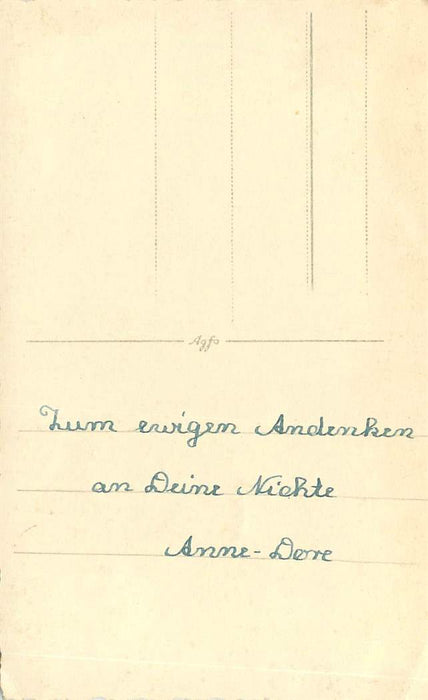 Agfa
Zum ewigen Andenken
an Deine Nichte
Anne-Dore